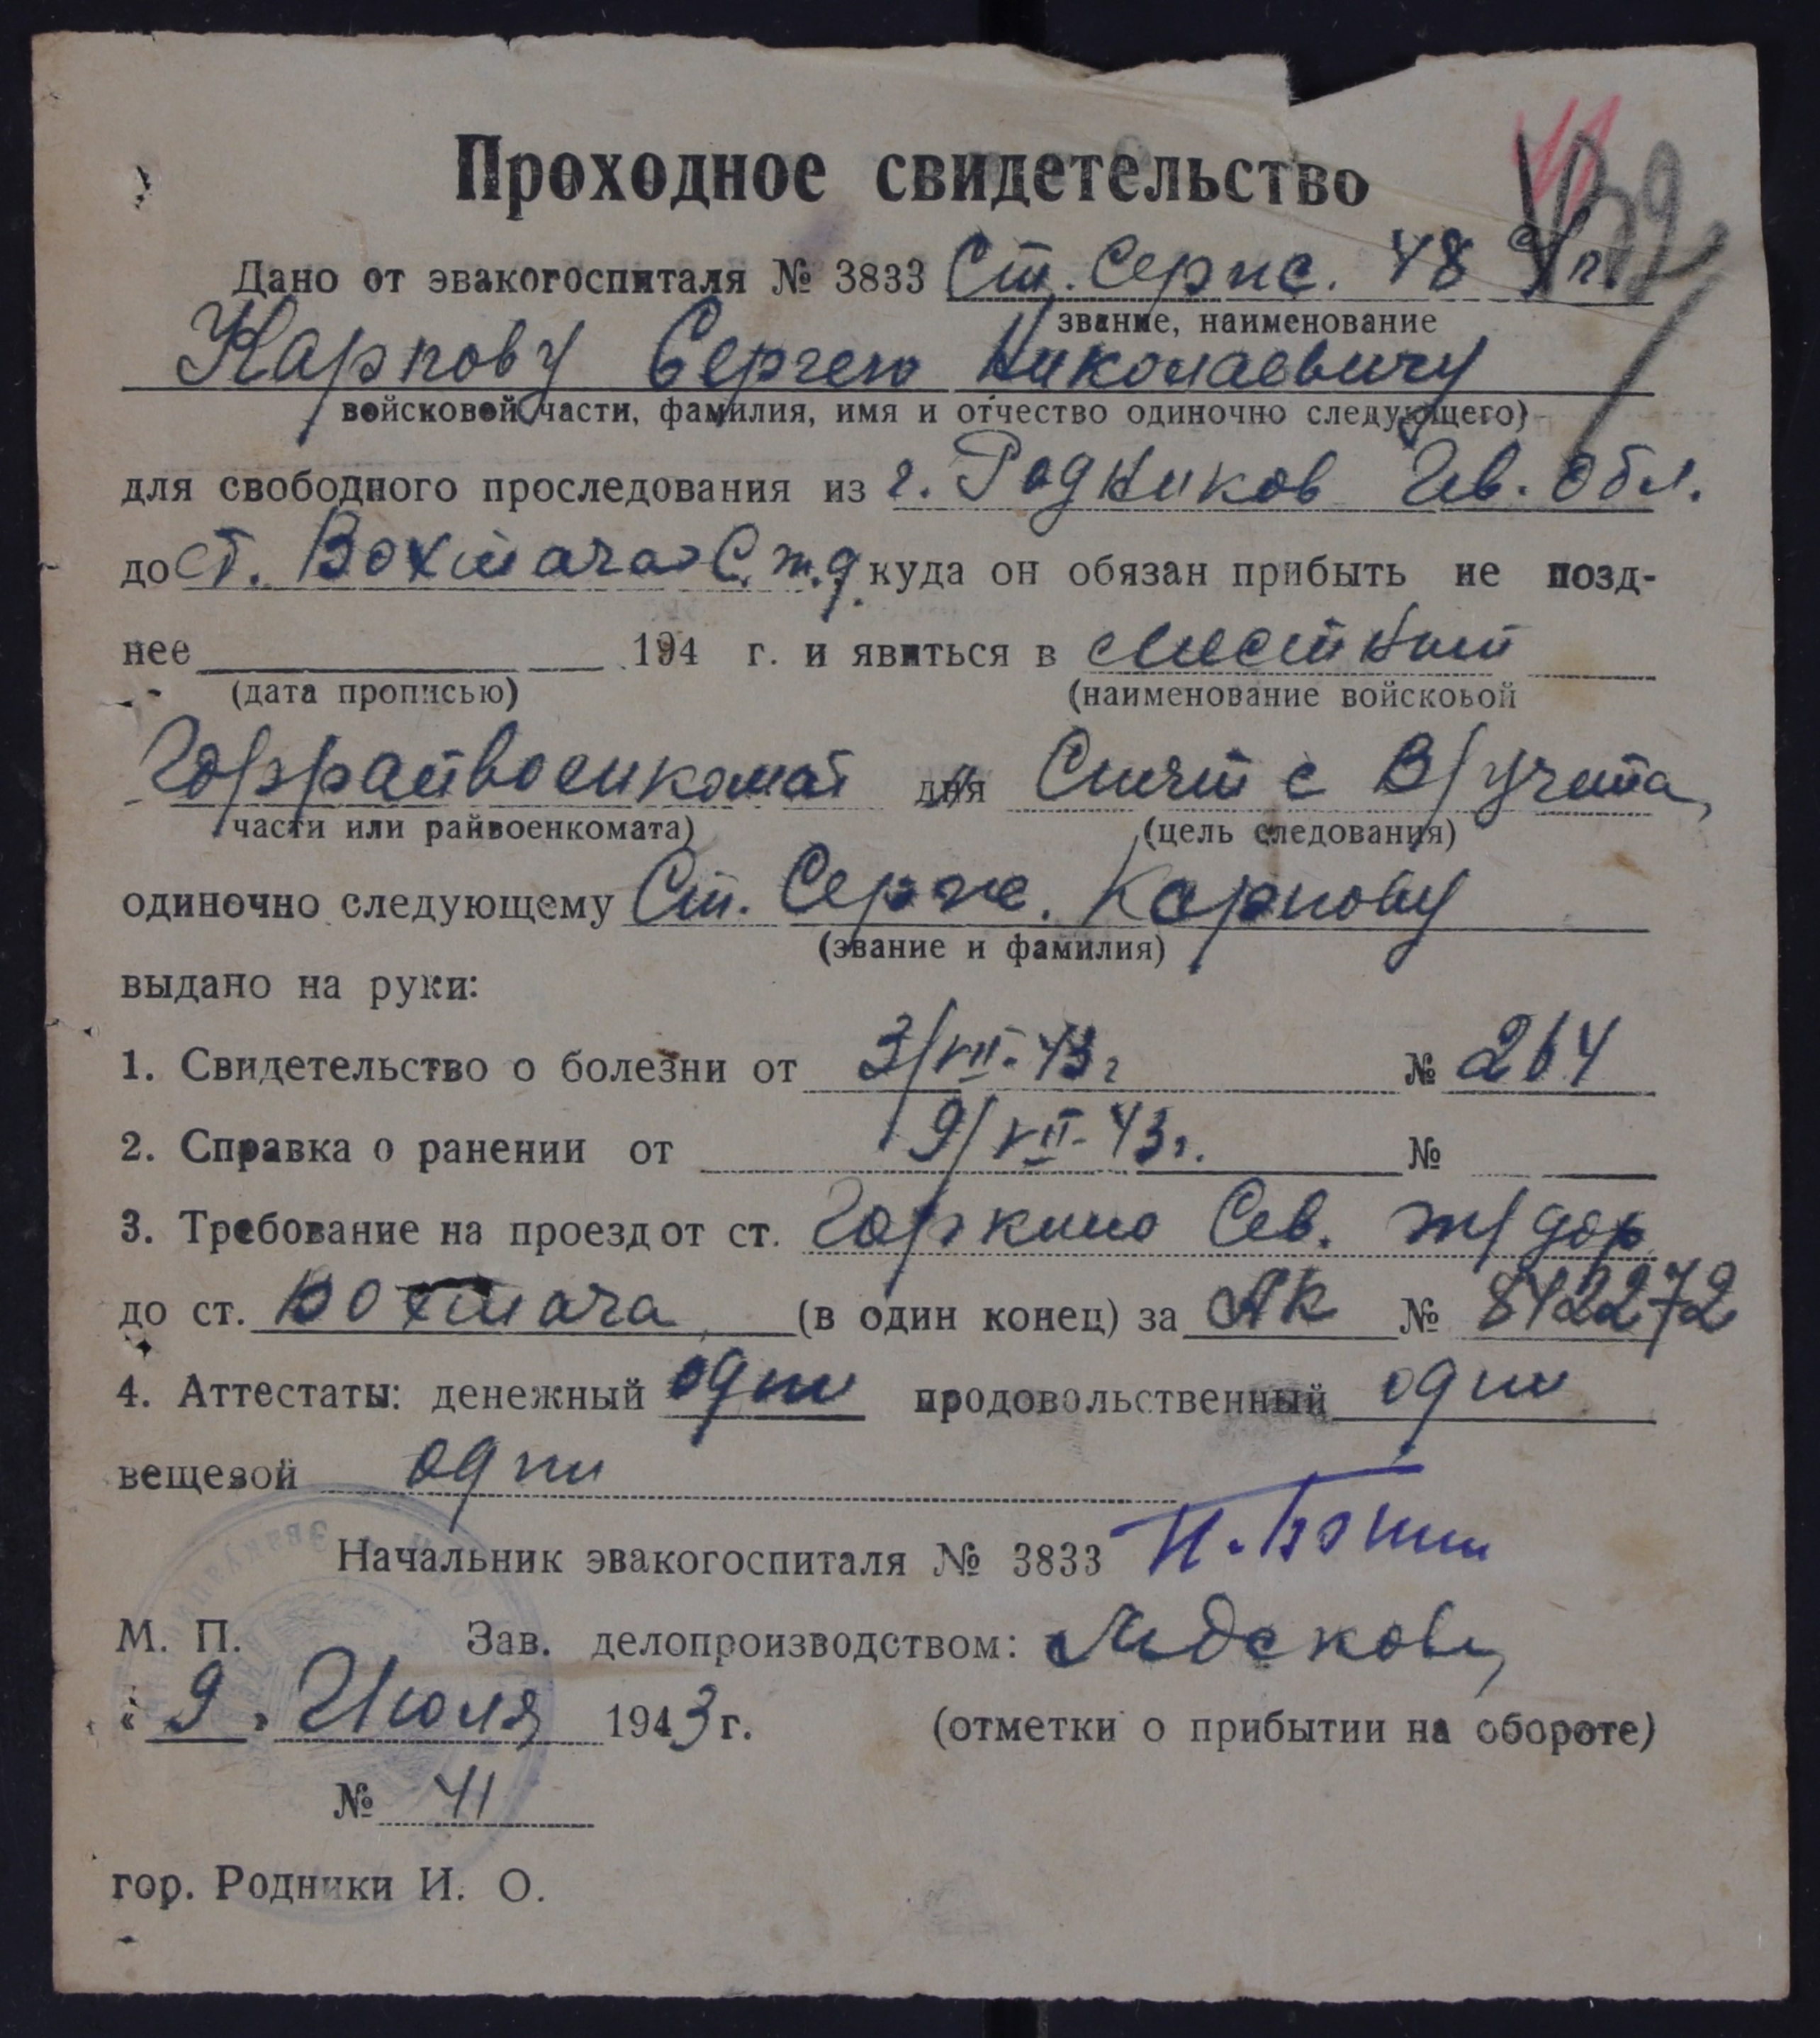 41
Проходное свидетельство
Дано от эвакогоспиталя № 3833 Ст. Серж. 48
звание, наименование
Карпову Сергею Николаевичу
войсковой части, фамилия, имя и отчество одиночно следующего)
для свободного проследования из г. Родников Ив. Обл.
до ст. Вохтога С. ж. д. куда он обязан прибыть не позд-
нее 194 г. и явиться в местный
(дата прописью) (наименование войсковой
Горрайвоенкомат для Снят с В/учета,
части или райвоенкомата) (цель следования)
одиночно следующему Ст. Серж. Карпову
(звание и фамилия)
выдано на руки:
1. Свидетельство о болезни от 3/VII-43г № 264
2. Справка о ранении от 9/VII-43г. №
3. Требование на проезд от ст. Горкино Сев. ж/дор
до ст. (в один конец) за АК № 842272
4. Аттестаты: денежный один продовольственный один
вещевой один
Начальник эвакогоспиталя № 3833
М. П. Зав. делопроизводством:
« 9 » Июля 1943 г. (отметки о прибытии на обороте)
№ 41
гор. Родники И. О.